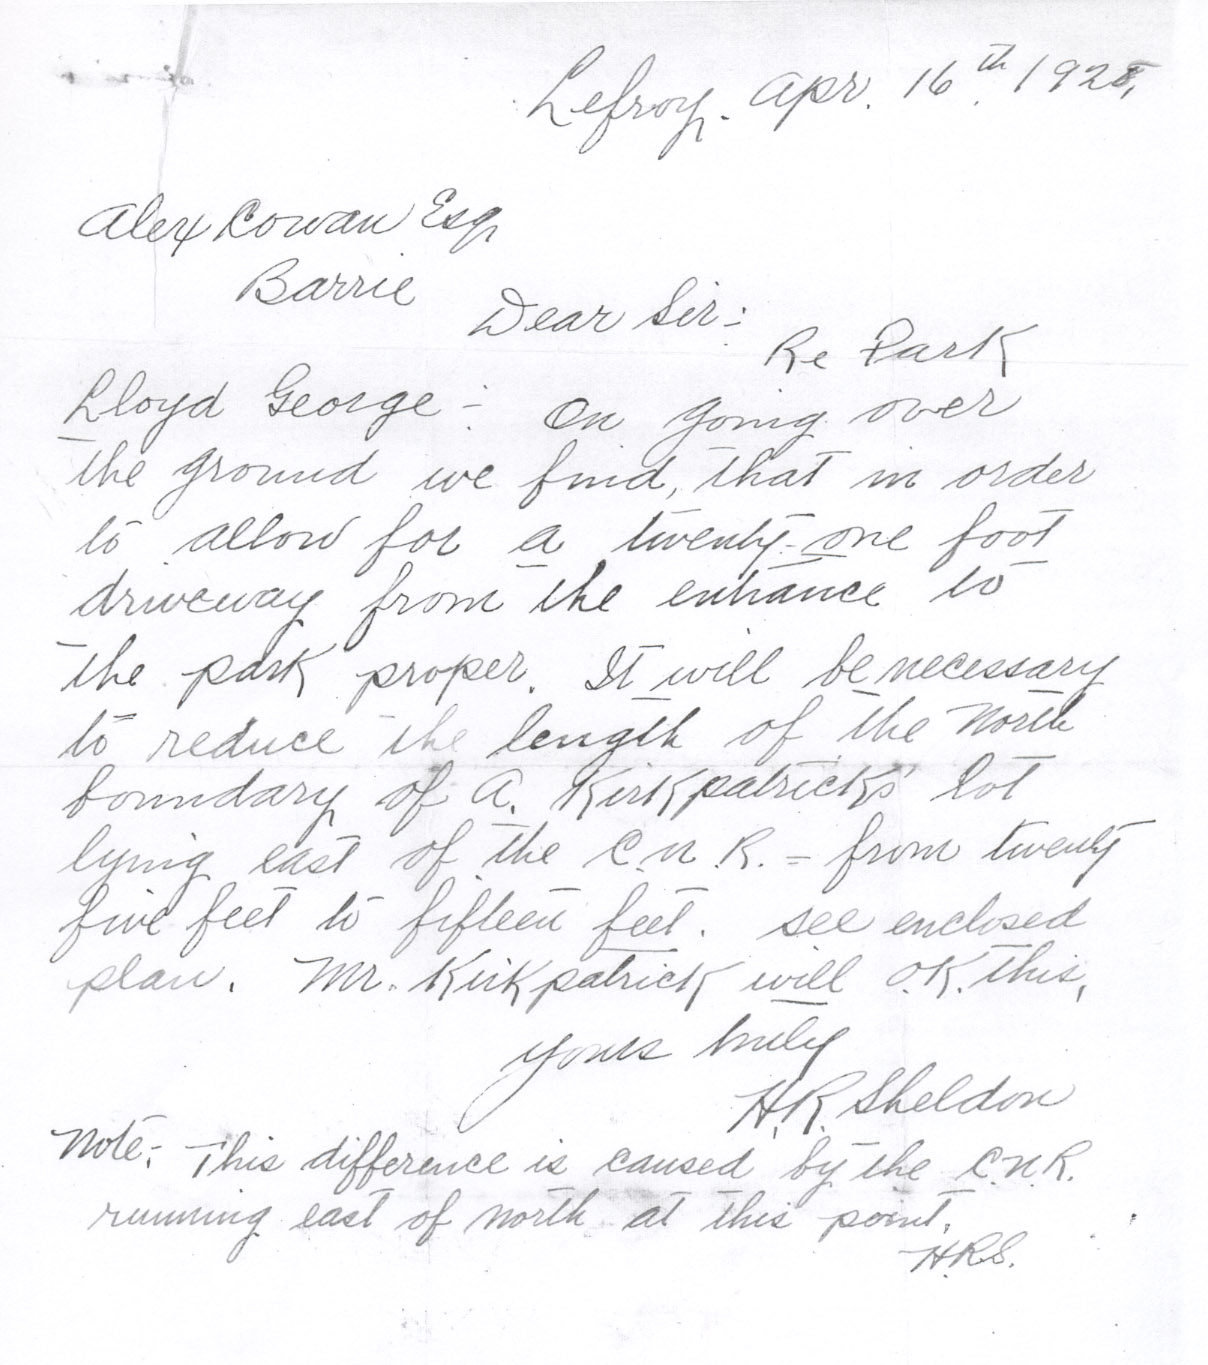 Lefroy. Apr. 16th. 1925,
Alex Cowan Esq,
Barrie
Dear Sir:-
Re Park
Lloyd George:- On going over
the ground we find, that in order
to allow for a twenty-one foot
driveway from the entrance to
the park proper. It will be necessary
to reduce the length of the North
boundary of A. Kirkpatricks' lot
lying east of the C.N.R. = from twenty
five feet to fifteen feet. see enclosed
plan. Mr. Kirkpatrick will O.K. this,
yours truly
H.R. Sheldon
Note:- This difference is caused by the C.N.R.
running east of north at this point.
H.R.S.